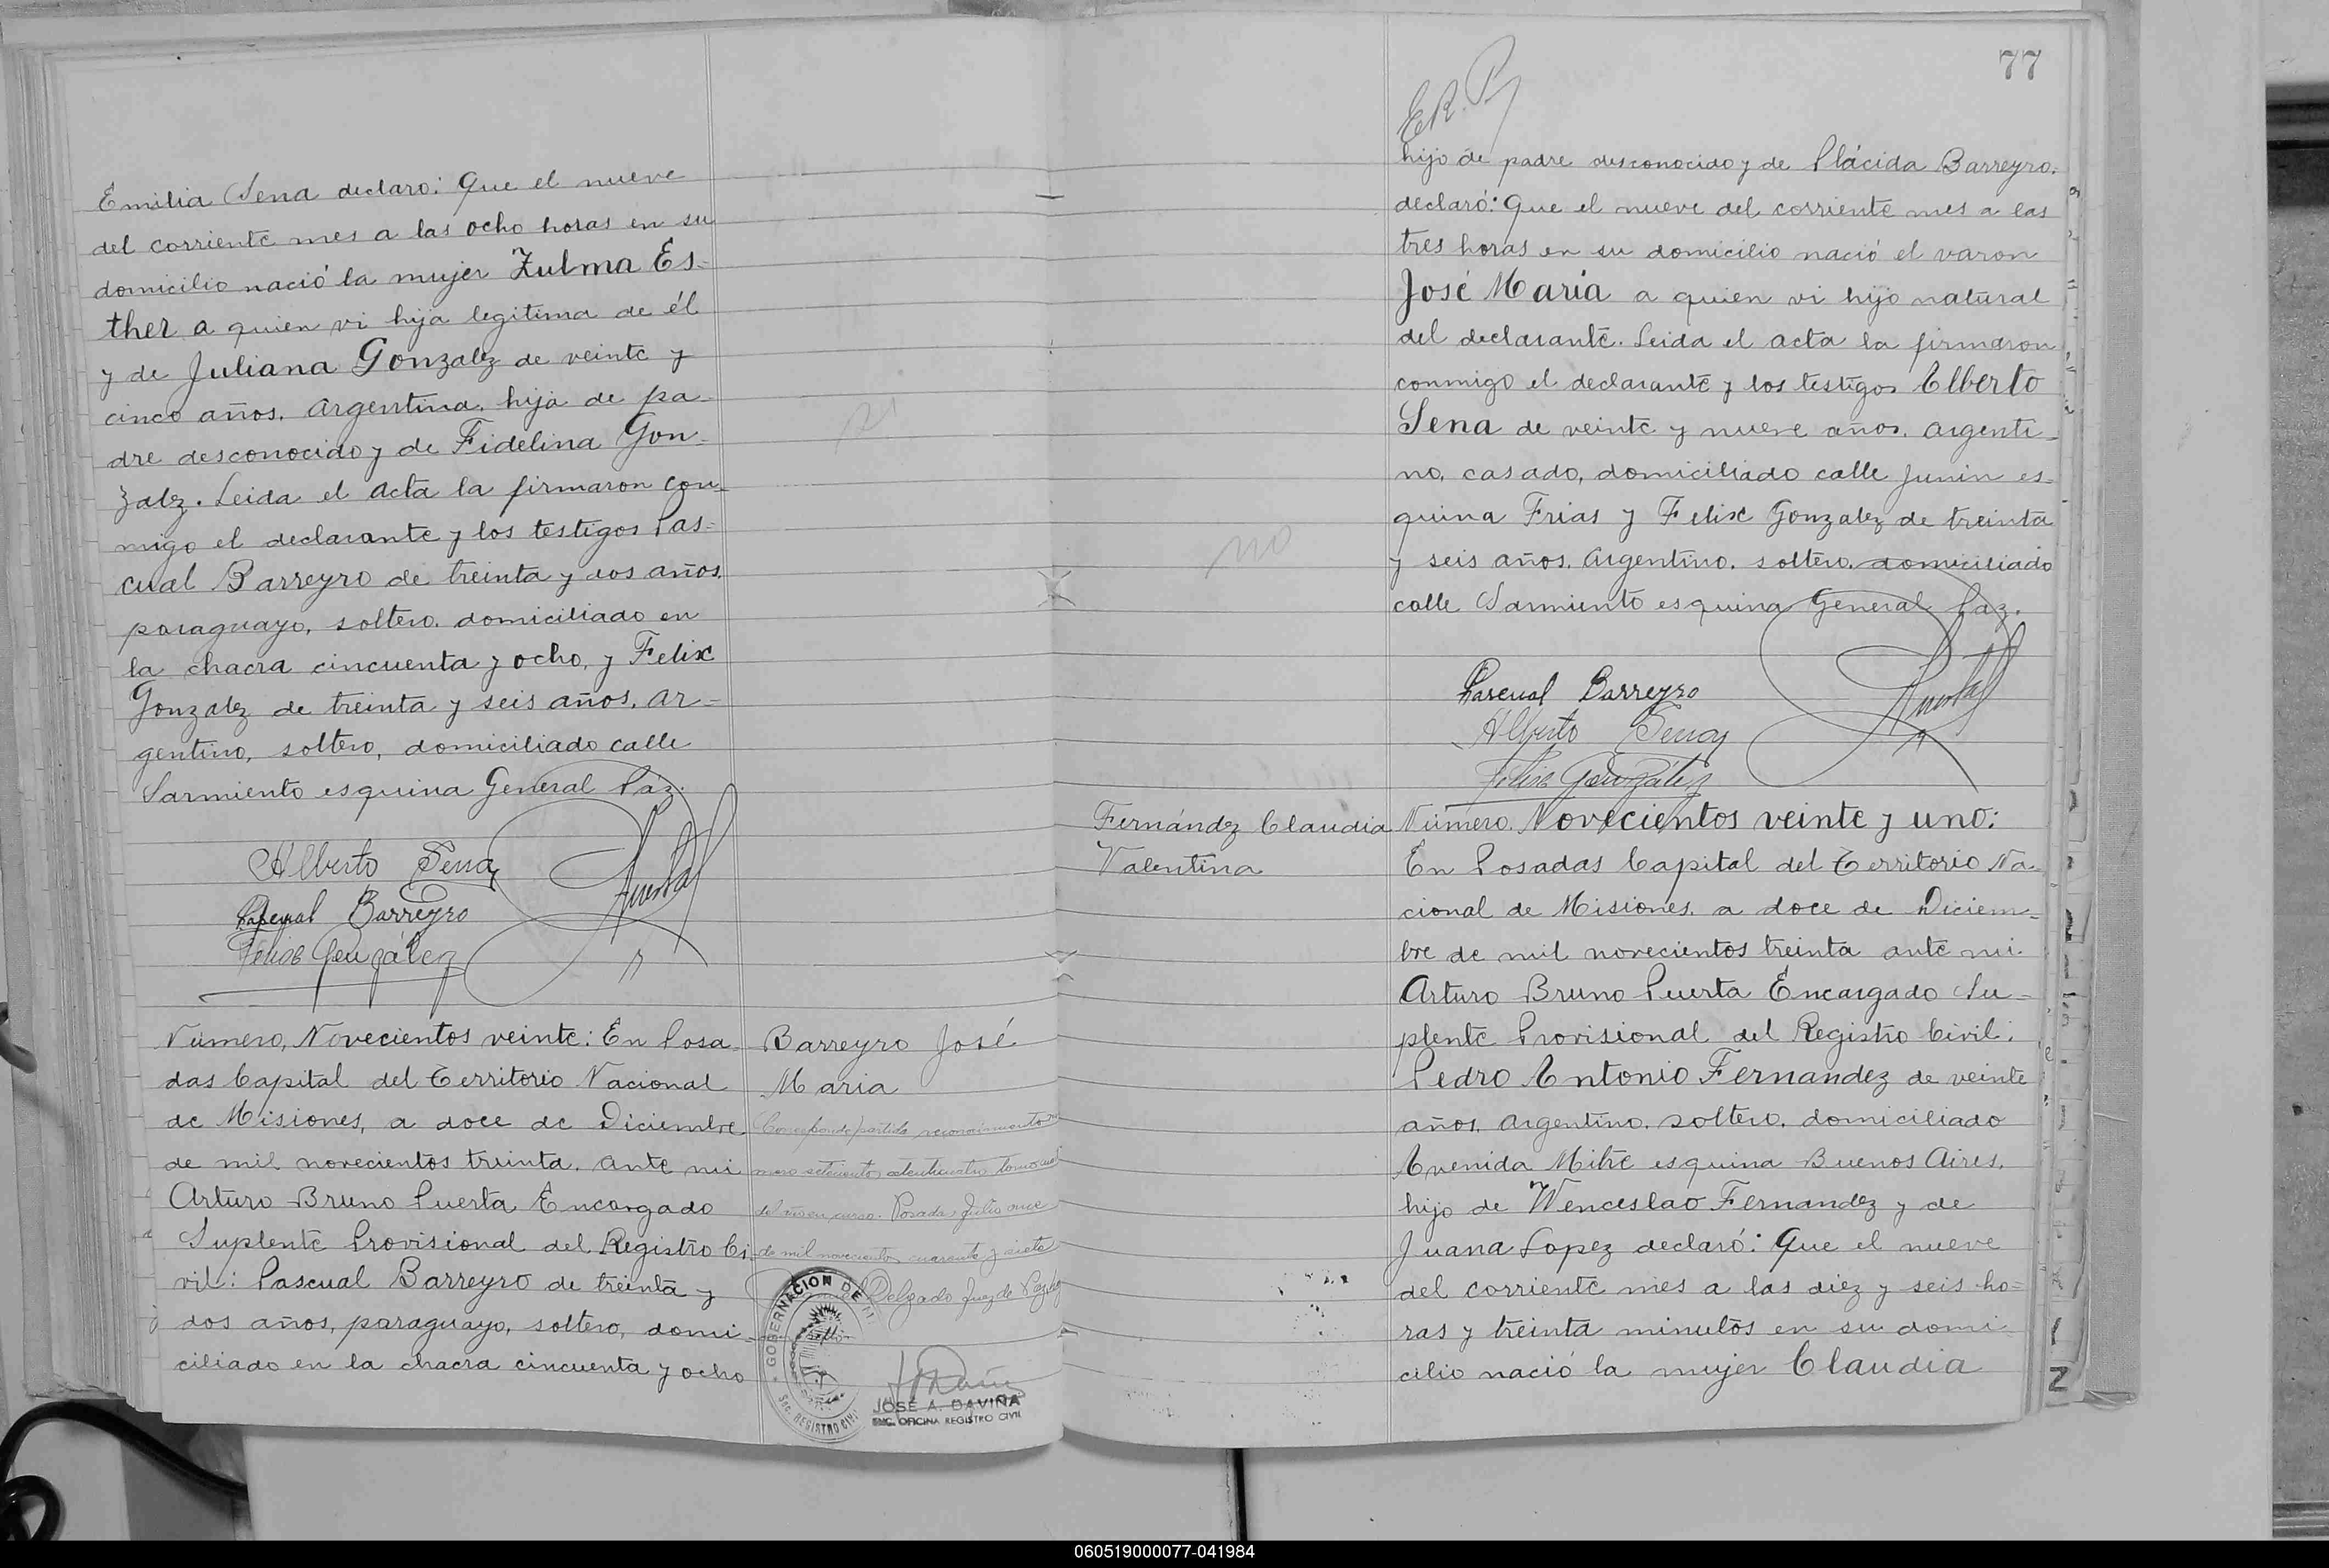 Emilia Sena declaro: Que el nueve
del corriente mes a las ocho horas en su
domicilio nació la mujer Zulma Es=
ther a quien vi hija legitima de él
y de Juliana Gonzalez de veinte y
cinco años, argentina, hija de pa-
dre desconocido y de Fidelina Gon=
zalez. Leida el acta la firmaron con-
migo el declarante y los testigos Pas=
cual Barreyro de treinta y dos años,
paraguayo, soltero, domiciliado en
la chacra cincuenta y ocho, y Felix
Gonzalez de treinta y seis años, ar=
gentino, soltero, domiciliado calle
Sarmiento esquina General Paz.
Alberto Sena
Pascual Barreyro
Felix González
Número, Novecientos veinte: En Posa-
das Capital del Territorio Nacional
de Misiones, a doce de Diciembre
de mil novecientos treinta, ante mi
Arturo Bruno Puerta Encargado
Suplente Provisional del Registro Ci-
vil: Pascual Barreyro de treinta y
dos años, paraguayo, soltero, domi-
ciliado en la chacra cincuenta y ocho
Barreyro José
Maria
Corresponde partida reconocimiento
del año en curso. Posadas, Julio once
de mil novecientos cuarenta y siete
Delgado Juez de Paz
GOBERNACION DE
REGISTRO CIVIL
JOSÉ A. DAVIÑA
ENC. OFICINA REGISTRO CIVIL
77
hijo de padre desconocido y de Plácida Barreyro.
declaró: Que el nueve del corriente mes a las
tres horas en su domicilio nació el varon
José Maria a quien vi hijo natural
del declarante. Leida el acta la firmaron
conmigo el declarante y los testigos Alberto
Sena de veinte y nueve años, argenti-
no, casado, domiciliado calle Junin es-
quina Frias y Felix Gonzalez de treinta
y seis años, argentino, soltero, domiciliado
calle Sarmiento esquina General Paz.
no
Pascual Barreyro
Alberto Sena
Felix González
Fernández Claudia
Valentina
Número, Novecientos veinte y uno:
En Posadas Capital del Territorio Na-
cional de Misiones, a doce de Diciem-
bre de mil novecientos treinta ante mi
Arturo Bruno Puerta Encargado Su-
plente Provisional del Registro Civil:
Pedro Antonio Fernandez de veinte
años, argentino, soltero, domiciliado
Avenida Mitre esquina Buenos Aires,
hijo de Wenceslao Fernandez y de
Juana Lopez declaró: Que el nueve
del corriente mes a las diez y seis ho=
ras y treinta minutos en su domi-
cilio nació la mujer Claudia
060519000077-041984